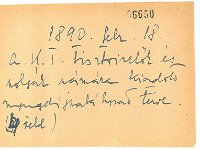 56650
1890. febr. 18.
A K. I. tisztviselők és
szolgák számára kiadott
nyugdíjszabályzat terve.